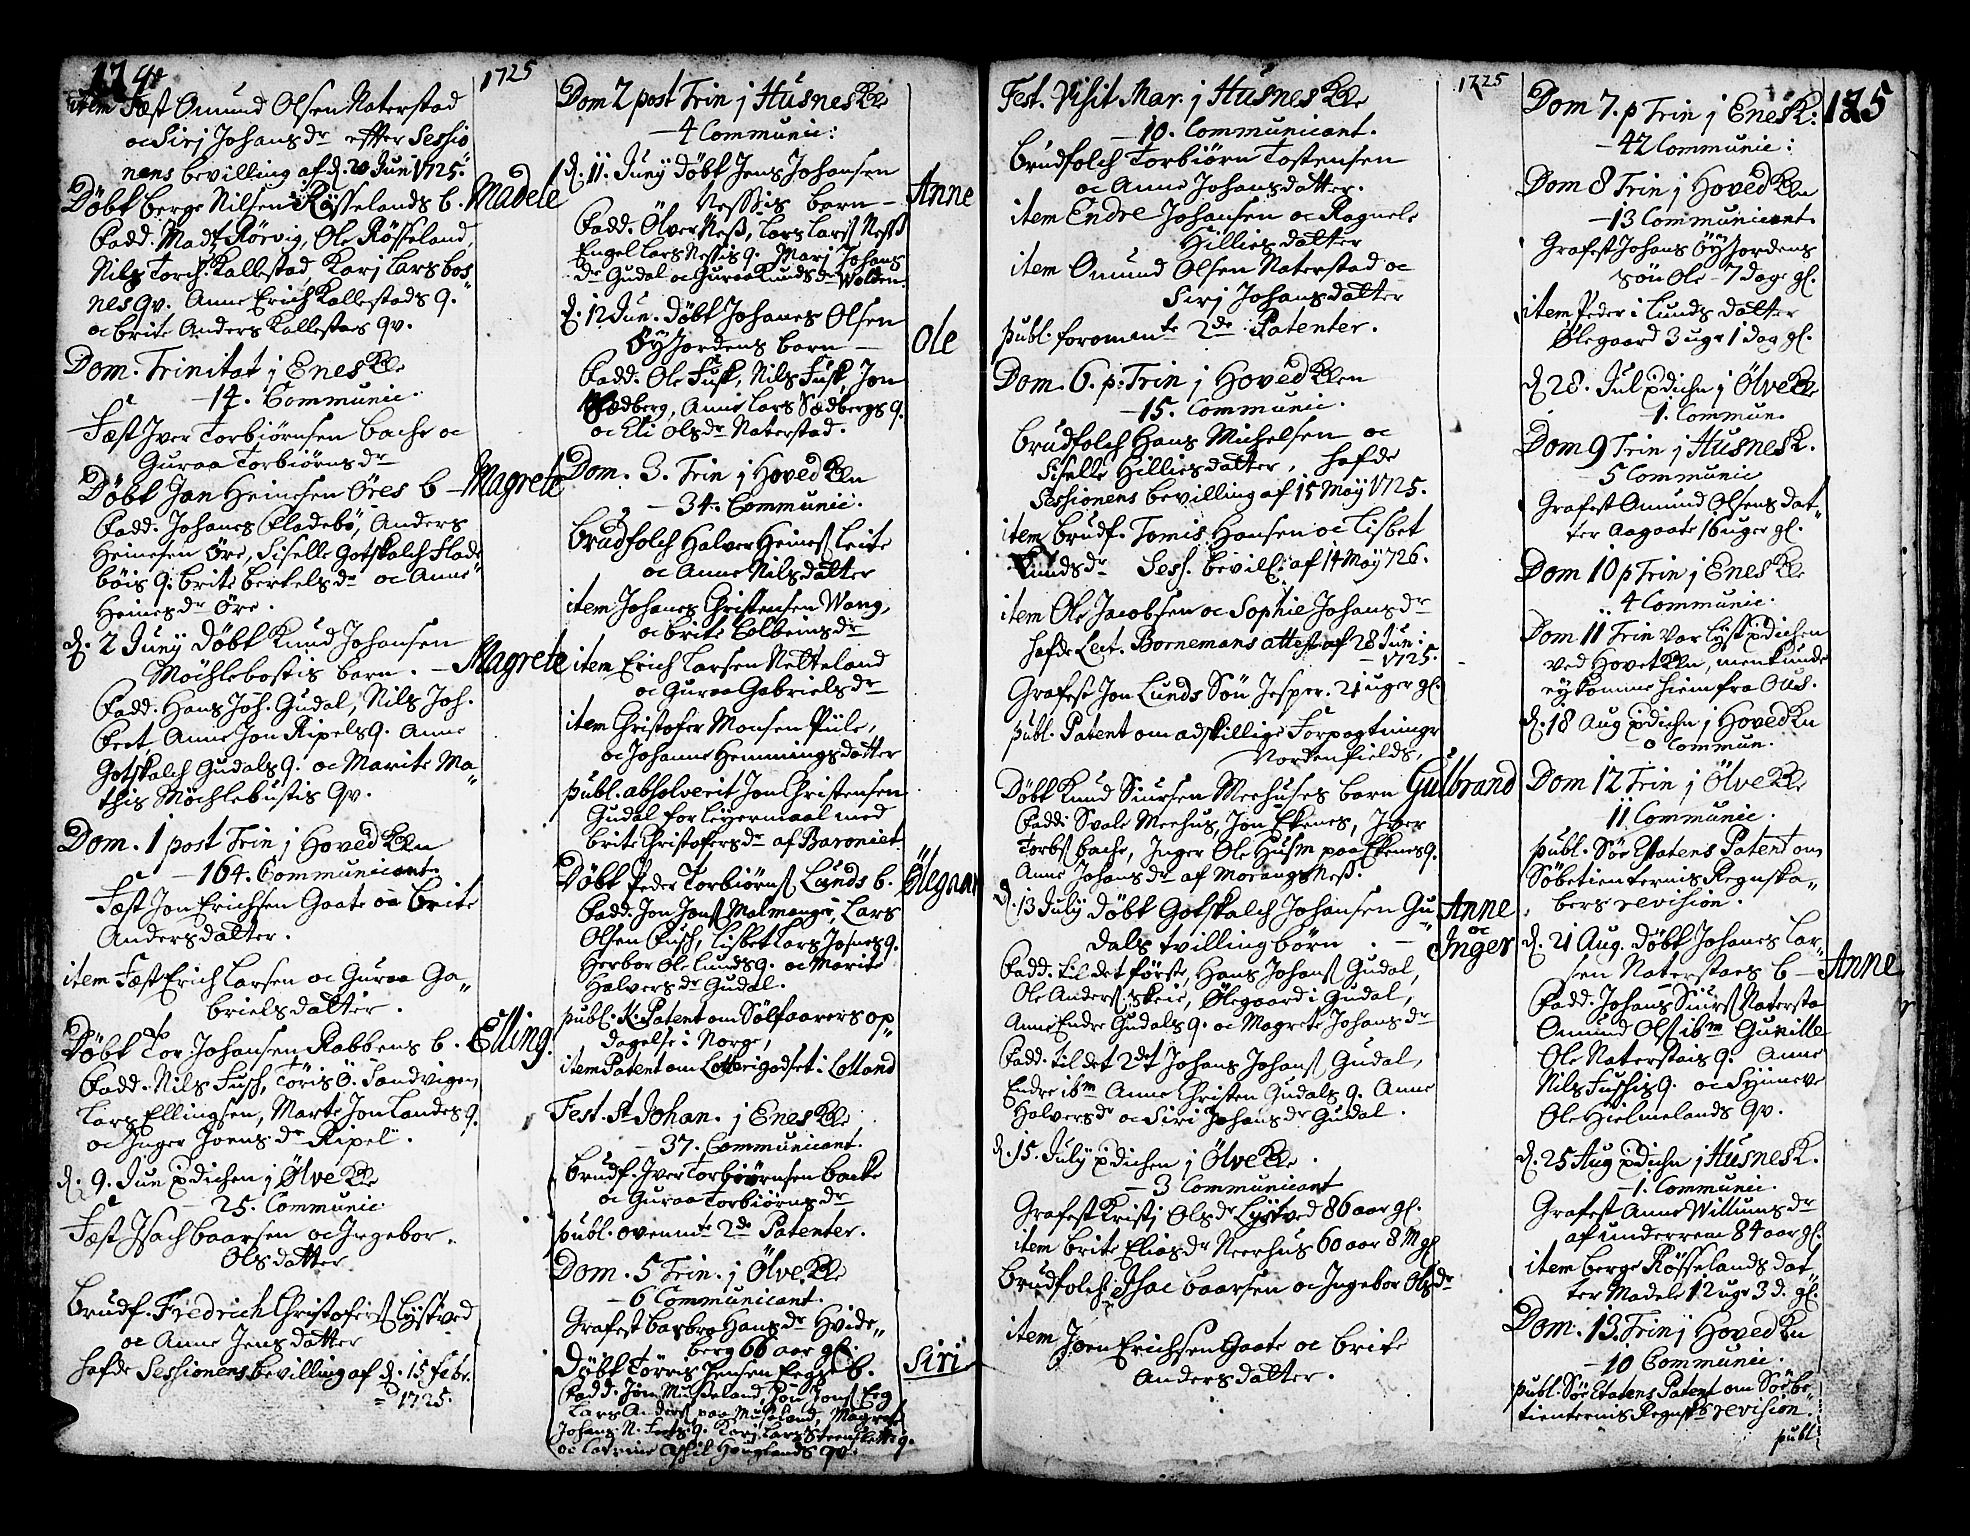 174
1725
item Fæst Omund Olsen Naterstad
oc Sirj Johansdr efter Sessio
nens bevilling af d. 20 Jun 1725.
Döbt berge Nilsen Rösselands b. Madele
Fadd. Madz Rörvig, Ole Rösseland,
Nils Torch. Kallestad, Karj Lars bos
nes qv. Anne Erich Kallestads q.
oc brite Anders Kallestas qv.
Dom. Trinitat j Enes Kle
14. Communic.
Fæst Iver Torbiörnsen bache oc
Guroa Torbiörnsdr
Döbt Jan Heinesen Öres b - Magrete
Fadd. Johanes Fladebö, Anders
Heinesen Öre, Siselle Gotskalch Flade
böis q. brite berkelsdr oc Anne
Heinesdr Öre.
d. 2 Junÿ Döbt Knud Johansen
Möchlebostis barn. - Magrete
Fadd. Hans Joh. Gudal, Nils Joh.
Feet, Anne Jon Ripels q. Anne
Gotskalch Gudals q. oc Marite Ma
this Möchlebustis qv.
Dom. 1 post Trin j Hoved Klen
- 164. Communicant
Fæst Jon Erichsen Gaate oc Brite
Andersdatter.
item Fæst Erich Larsen oc Guroa Ga
brielsdatter.
Döbt Tor Johansen Rabbens b. Elling.
Fadd. Nils Fusch, Töris ö. Sandvigen,
Lars Ellingsen, Marte Jon Landes q.
oc Inger Joensdr Ripel.
d. 9. Jun pdichen j Ölve Kle
25. Communic
Fæst Isach baarsen oc Ingebor
Olsdatter
Brudf. Fredrich Christofers Lÿstved
oc Anne Jensdatter
hafde Sessionens bevilling af d. 15 febr.
1725.
Dom 2 post Trin j Husnes Kle
- 4 Communic:
d. 11. Junÿ döbt Jens Johansen
Nessis barn - Anne
Fadd. Ölver Ness, Lars Lars Ness
Engel Lars Nessis q. Marj Johans
dr Gudal oc Guroa Knudsdr Wolden.
d. 12 Jun. Döbt Johanes Olsen
Öÿjordens barn - Ole
Fadd. Ole Fusk, Nils Fusk, Jon
Sædberg, Anne Lars Sædbergs q.
oc Eli Olsdr Naterstad.
Dom. 3. Trin j Hoved Klen
- 34. Communic.
Brudfolch Halver Heines Leite
oc Anne Nilsdatter
item Johanes Christensen Wang,
oc brite Colbeinsdr
item Erich Larsen Netteland
oc Guroa Gabrielsdr
item Christofer Monsen Piile,
oc Johanne Hemmingsdatter
publ. absolverit Jon Christensen
Gudal for Leÿermaal med
brite Christofersdr af Baroniet.
Döbt Peder Torbiörns Lunds b. Ölegaar
Fadd. Jon Jons Malmanger, Lars
Olsen Fusch, Lisbet Lars Josnes q.
Herbor Ole Lunds q. oc Marite
Halversdr Gudal.
publ. K. Patent om Sölfaarers op
dagelse i Norge,
item Patent om Lotterigodset i Lolland
Fest. St. Johan. j Enes Kle
37. Communicant.
Brudf. Iver Torbiörnsen backe
oc Guroa Torbiörnsdr
publ. ovennte 2de Patenter.
Dom. 5 Trin. j Ölve Kle
- 6 Communicant.
Grafest barbra Hansdr Hvide
berg 66 aar gl.
Döbt Törris Jensen Eegs b. Siri
Fadd. Jon Museland, Jon Jons Eeg
Lars Anders paa Museland, Magrete
Johans N. Feets q. Karj Lars Steensletts q.
oc Catrine Askil Hauglands qv.
Fest. Visit. Mar. j Husnes Kle
- 10. Communicant.
Brudfolch Torbiörn Tostensen
oc Anne Johansdatter.
item Endre Johansen oc Ragnele
Hilliesdatter
item Omund Olsen Naterstad oc
Sirj Johansdatter
publ. foromente 2de Patenter.
Dom. 6. p. Trin j Hoved Klen
- 15. Communic.
Brudfolch Hans Michelsen oc
Siselle Hilliesdatter, hafde
Sessionens bevilling af 15 Maÿ 1725.
item brudf. Tomis Hansen oc Lisbet
Knudsdr Sess. bevill: af 14 Maÿ 726.
item Ole Jacobsen oc Sophie Johansdr
hafde Leut. Bornemans attest af 28 Jun:
1725.
Grafest Jon Lunds Sön Jesper. 21 uger gl.
publ. Patent om adskillige Forpagtninger
Nordenfields,
Döbt Knud Siursen Meehuses barn Gulbrand
Fadd: Svale Meehus, Jon Ekenes, Iver
Torbs bache, Inger Ole Husm paa Ekenes q.
Anne Johansdr af Morangs Ness.
d. 13 Julÿ Döbt Gotskalch Johansen Gu
dals tvilling börn. - Anne oc Inger
Fadd. til det förste, Hans Johans Gudal,
Ole Anders Skeie, Ölegaard i Gudal,
Anne Endre Gudals q. oc Magrete Johansdr
Fadd. til det 2det Johans Johans Gudal,
Endre ibm Anne Christen Gudals q. Anne
Halversdr oc Siri Johansdr Gudal.
d. 15. Julÿ pdichen j Ölve Kle.
- 3 Communicant
Grafest Kristj Olsdr Lÿstved 86 aar gl.
item brite Eliasdr Neerhus 60 aar 8 M gl
Brudfolch Isac baarsen oc Ingebor Olsdr
item Joen Erichsen Gaate oc brite
Andersdatter.
1725
175
Dom 7. p Trin j Enes K:
- 42 Communic:
Dom 8 Trin j Hoved Klen
- 13 Communicant.
Grafest Johans Öÿjordens
Sön Ole - 7 dage gl.
item Peder i Lunds datter
Ølegaard 3 uger 1 dag gl.
d 28. Jul pdichn j Ölve Kle
1. Commun.
Dom 9 Trin j Husnes K.
- 5 Communic
Grafest Omund Olsens dat
ter Aagaate 16 uger gl.
Dom 10 p Trin j Enes Kle
4 Communic.
Dom 11 Trin var lÿst pdichen
ved Hovet Klen, men kunde
eÿ komme hiem fra Ous.
d. 18 Aug pdichn j Hoved Kn
- 0 Commun.
Dom 12 Trin j Ölve Kle
11 Communic.
publ. Söe Etatens Patent om
Söbetienternis Regnska
bers revision.
d. 21 Aug. Döbt Johanes Lar
sen Naterstaes b - Anne
Fadd. Johans Siurs Natersta
Omund Ols ibm Gunille
Ole Naterstais q. Anne
Nils Fuskis q. oc Sÿneve
Ole Hielmelands qv.
d. 25 Aug pdichn j Husnes K.
- 1. Communic.
Grafest Anne Willumsdr
af underrem 84 aar gl.
item berge Rösselands dat
ter Madele 12 uge 3 d. gl.
Dom. 13. Trin j Hoved Kn
- 10 Communic.
publ. Söe Etatens Patent om Söebe
tienternis Regnsks revision.
publ